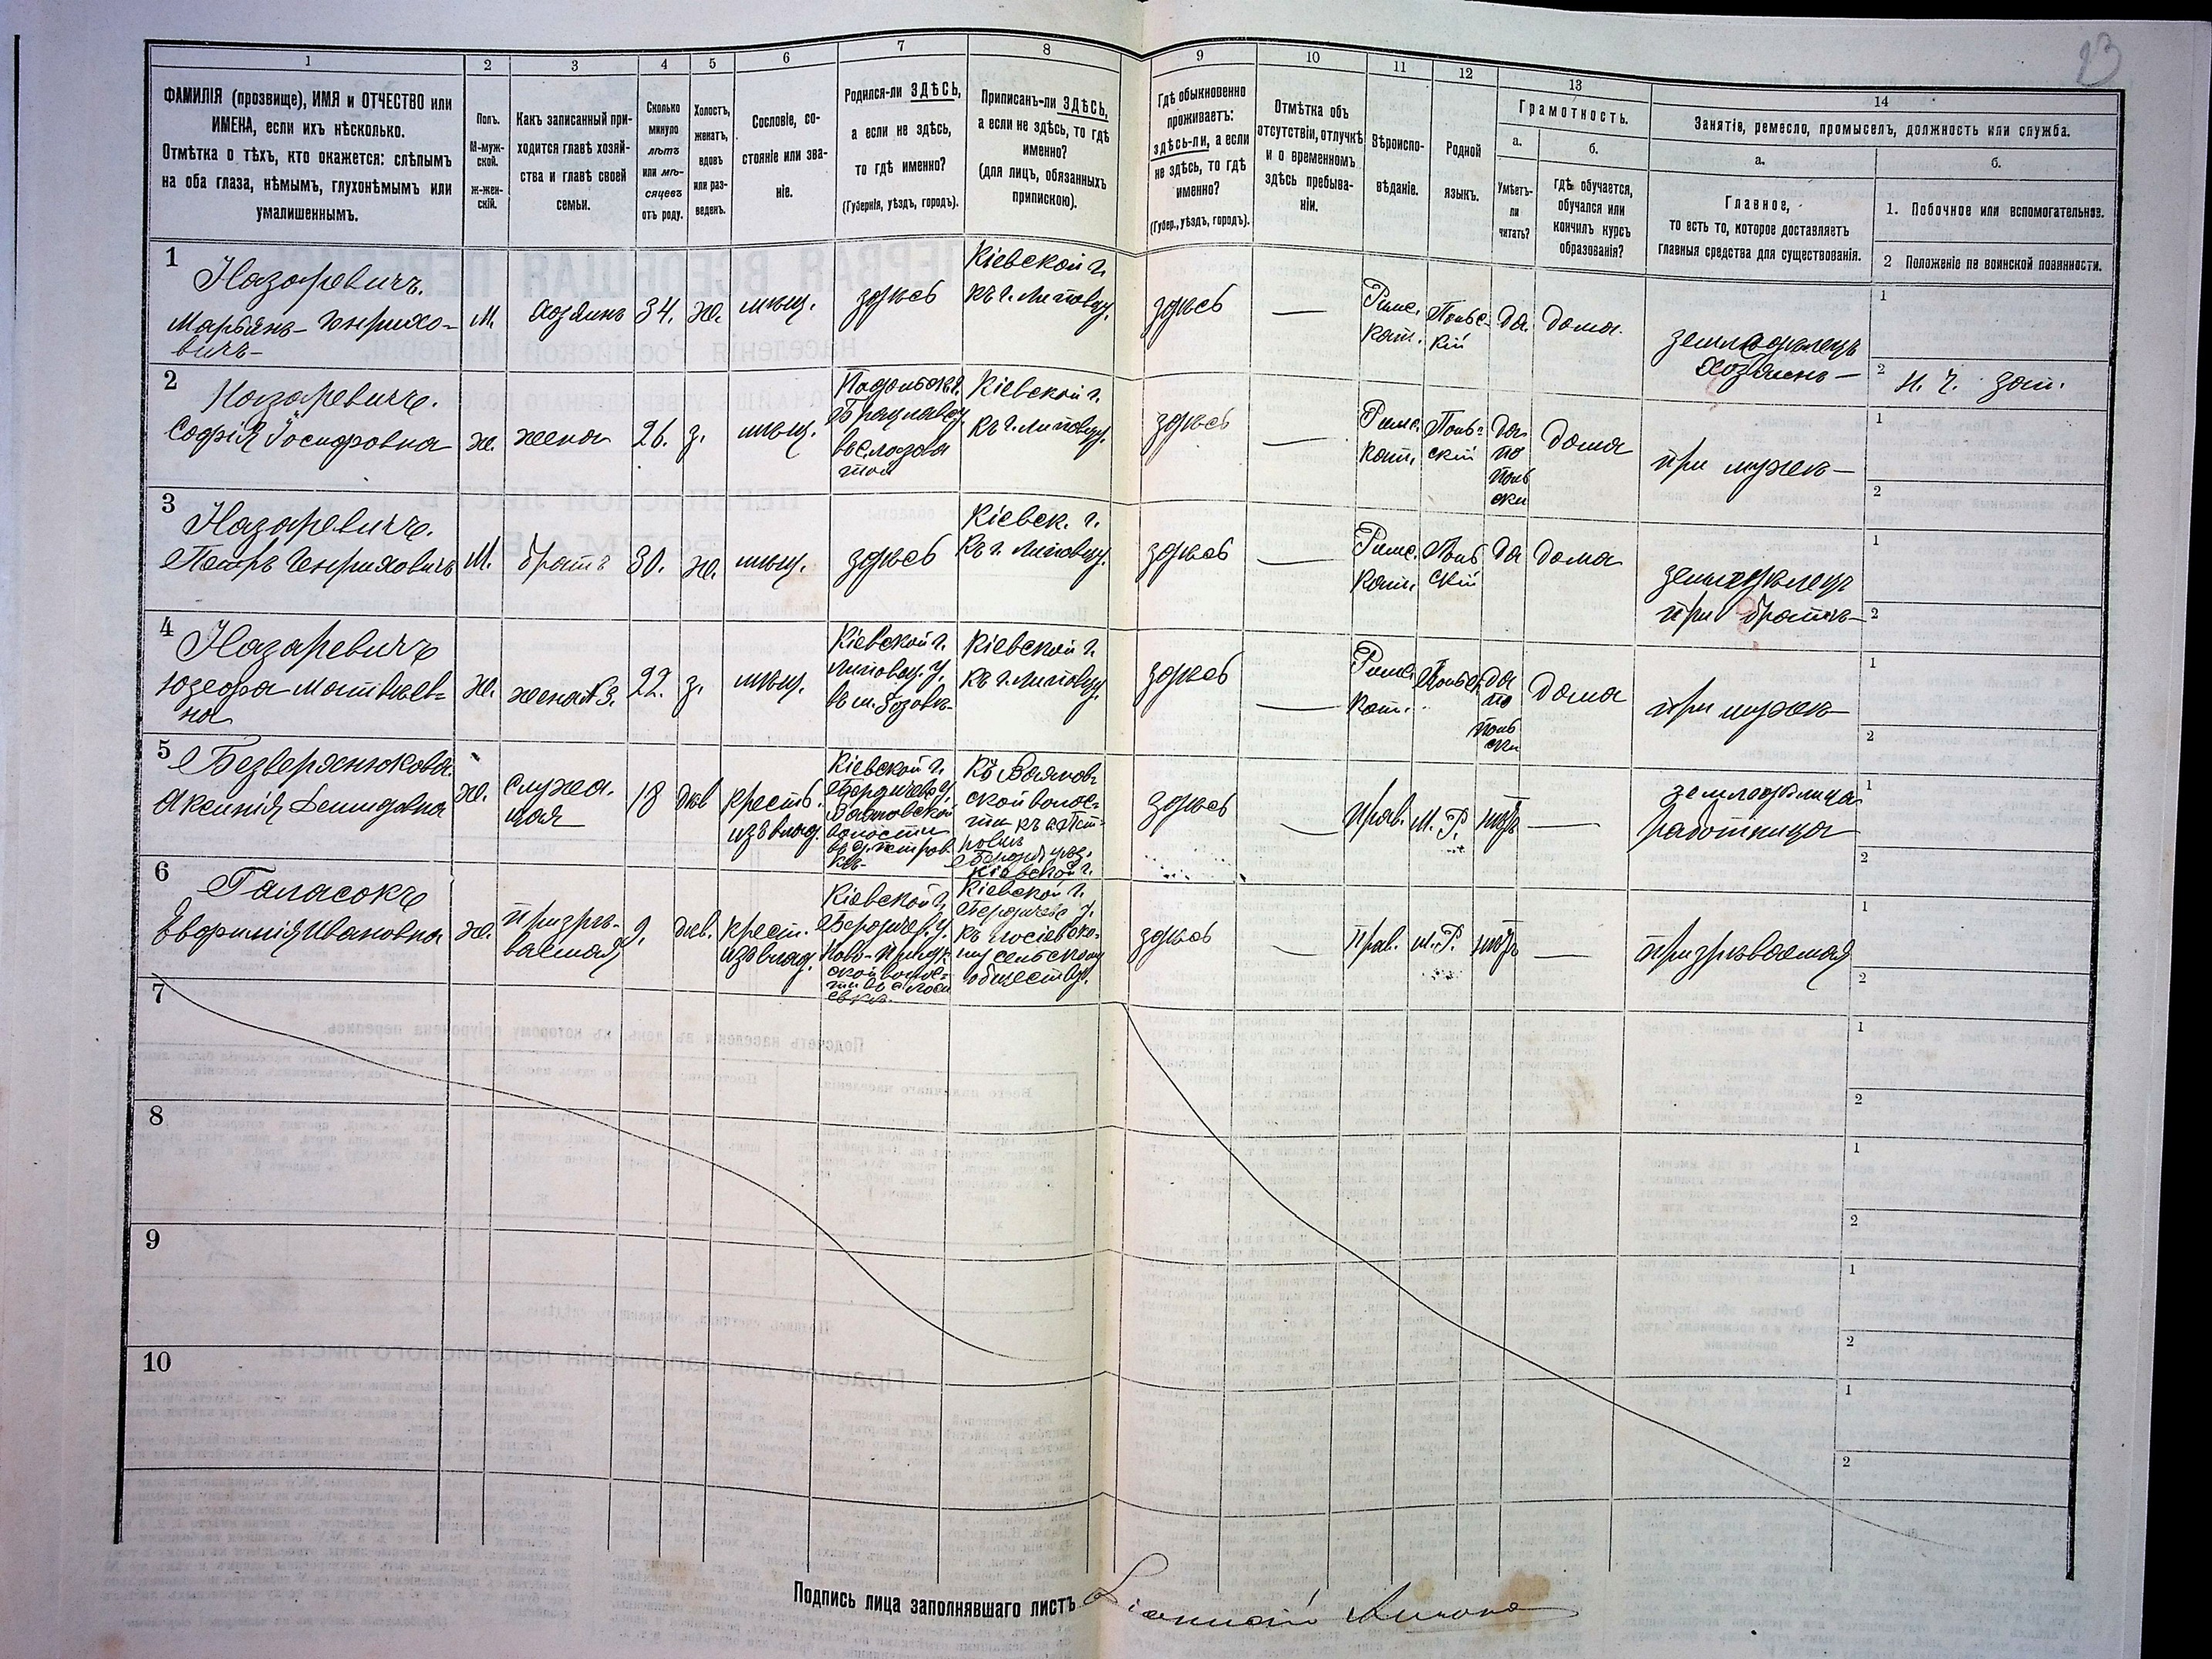 23
1
2
3
4
5
6
7
8
9
10
11
12
13
14
ФАМИЛІЯ (прозвище), ИМЯ и ОТЧЕСТВО или
ИМЕНА, если ихъ нѣсколько.
Отмѣтка о тѣхъ, кто окажется: слѣпымъ
на оба глаза, нѣмымъ, глухонѣмымъ или
умалишеннымъ.
Полъ.
М-муж-
ской.
ж-жен-
скій.
Какъ записанный при-
ходится главѣ хозяй-
ства и главѣ своей
семьи.
Сколько
минуло
лѣтъ
или мѣ-
сяцевъ
отъ роду.
Холостъ,
женатъ,
вдовъ
или раз-
веденъ.
Сословіе, со-
стояніе или зва-
ніе.
Родился-ли ЗДѢСЬ,
а если не здѣсь,
то гдѣ именно?
(Губернія, уѣздъ, городъ).
Приписанъ-ли ЗДѢСЬ,
а если не здѣсь, то гдѣ
именно?
(для лицъ, обязанныхъ
припискою).
Гдѣ обыкновенно
проживаетъ:
здѣсь-ли, а если
не здѣсь, то гдѣ
именно?
(Губер., уѣздъ, городъ).
Отмѣтка объ
отсутствіи, отлучкѣ
и о временномъ
здѣсь пребыва-
ніи.
Вѣроиспо-
вѣданіе.
Родной
языкъ.
Грамотность.
а.
Умѣетъ-
ли
читать?
б.
гдѣ обучается,
обучался или
кончилъ курсъ
образованія?
Занятіе, ремесло, промыселъ, должность или служба.
а.
Главное,
то есть то, которое доставляетъ
главныя средства для существованія.
б.
1. Побочное или вспомогательное.
2 Положеніе по воинской повинности.
1
Назаревичъ.
Марьянъ- Генрихо-
вичъ-
М.
хозяинъ
34.
ж.
мѣщ.
здѣсь
Кіевской г.
къ г. Липовцу.
здѣсь
—
Римс.
кат.
Польс-
кій
да.
дома.
земледѣлецъ
хозяинъ —
1
2
н. ч. зап.
2
Назаревичъ.
Софія Іосифовна
ж.
жена
26.
з.
мѣщ.
Кіевской г.
къ г. Липовцу.
здѣсь
—
Римс.
кат.
Поль-
скій
да
по
поль
ски
дома
при мужѣ —
1
2
3
Назаревичъ.
Петръ Генриховичъ
М.
братъ
30.
ж.
мѣщ.
здѣсь
Кіевск. г.
къ г. Липовцу.
здѣсь
—
Римс.
кат.
Поль
скій
да
дома
земледѣлецъ
при братѣ —
1
2
4
Назаревичъ
Юзефа Матвѣев-
на
ж.
жена №3.
22.
з.
мѣщ.
Кіевской г.
Липовец. у.
Кіевской г.
къ г. Липовцу.
здѣсь
—
Римс.
кат.
Польск.
да
по
поль
ски
дома
при мужѣ
1
2
5
Безверхнюкова.
Аксинія Демидовна
ж.
служа.
щая
18
дѣв
крестъ.
изъ влад.
Кіевской г.
Бердичев. у.
волости
Кіевской г.
здѣсь
—
прав.
м. Р.
нѣтъ
—
земледѣлица
работница
1
2
6
Галасокъ
Евфимія Ивановна
ж.
призрѣ-
ваемая
9.
дѣв.
крест.
изъ влад.
Кіевской г.
Бердичев. у.
Кіевской г.
Бердичев. у.
сельскому
обществу.
здѣсь
—
прав.
м. Р.
нѣтъ
—
призрѣваемая
1
2
7
1
2
8
1
2
9
1
2
10
1
2
Подпись лица заполнявшаго листъ